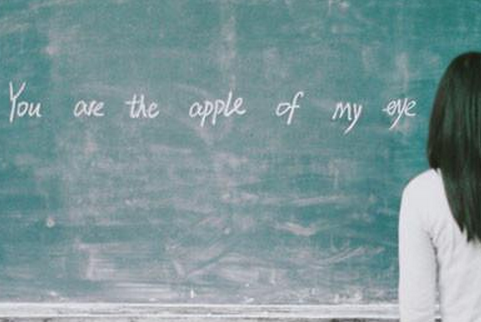 You are the apple of my eye